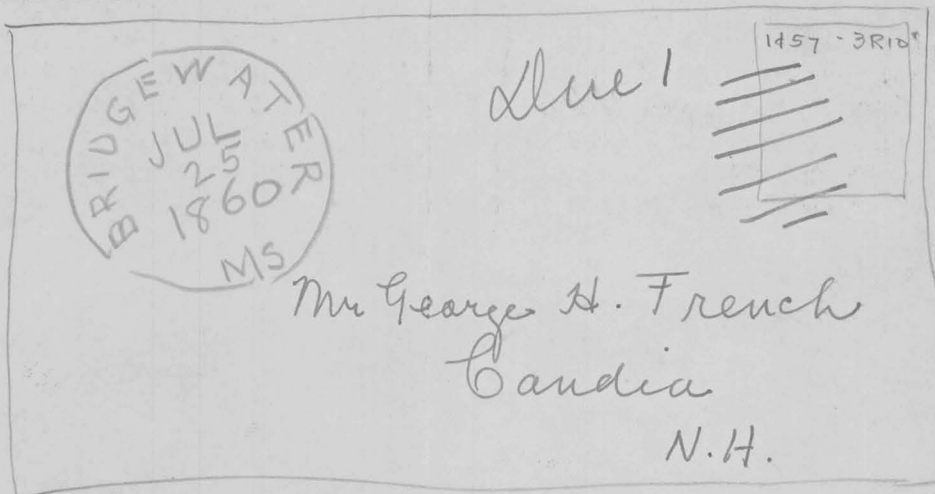 BRIDGEWATER
JUL
25
1860
MS
Due 1
1457 - 3R10¢
Mr George H. French
Candia
N.H.